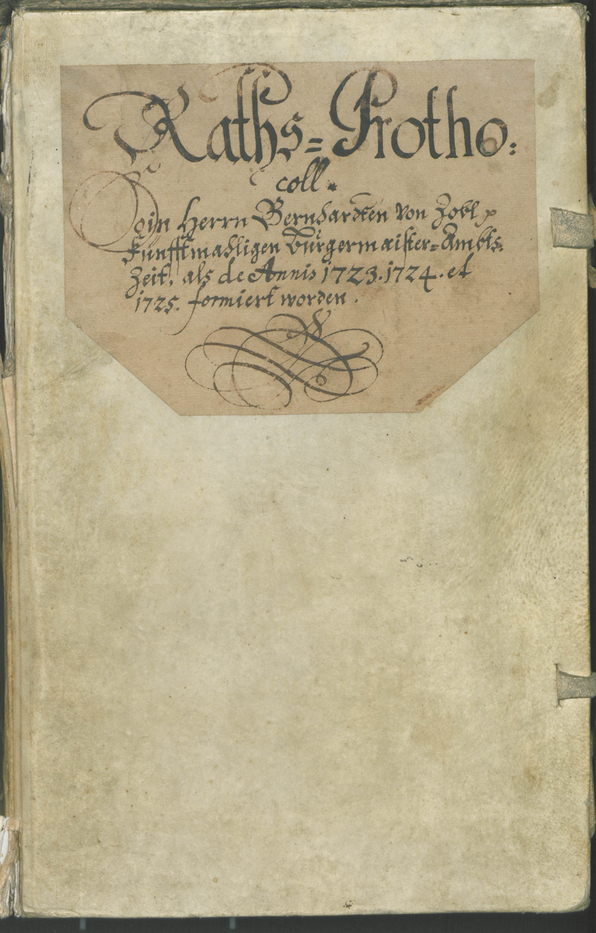 Raths=Protho:
coll.
Bey Herrn Bernhardten von Zobl
Funfftmahligen Burgermaister=Ambts
Zeit, als de Annis 1723. 1724. et
1725. formiert worden.